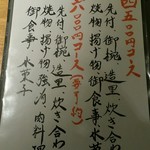 四、五〇〇円コース
先付 御椀 造里 炊き合わ
焼物 揚げ物 御食事 水菓
五、〇〇〇円コース(要予約)
先付 御椀 造里 炊き合わ
焼物 揚げ物 強肴 肉料理
御食事 水菓子